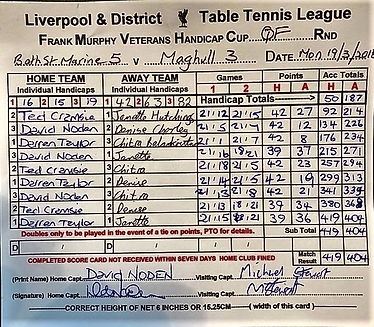 Liverpool & District Table Tennis League
FRANK MURPHY VETERANS HANDICAP CUP QF RND
Bath St Marine 5 v Maghull 3 DATE Mon 19/3/
HOME TEAM AWAY TEAM Games Points Acc Totals
Individual Handicaps Individual Handicaps 1 2 H A H A
1 16 2 15 3 19 1 42 2 63 3 82 Handicap Totals 50 187
2 Ted Cramsie 1 Janette Hutchings 21/12 21/15 42 27 92 214
3 David Noden 2 Denise 21/5 21/7 42 12 134 226
1 Derren Taylor 3 Chitra 21/1 21/7 42 8 176 234
3 David Noden 1 Janette 18/21 39 37 215 271
2 Ted Cramsie 3 Chitra 21/8 21/15 42 23 257 294
1 Derren Taylor 2 Denise 42 19 299 313
3 David Noden 3 Chitra 42 341 339
2 Ted Cramsie 2 Denise 21/13 18/21 39 34 380 368
1 Derren Taylor 1 Janette 21/15 18/21 39 36 419 404
Doubles only to be played in the event of a tie on points, PTO for details. Sub Total 419 404
D / D /
COMPLETED SCORE CARD NOT RECEIVED WITHIN SEVEN DAYS HOME CLUB FINED Match Result 419 404
(Print Name) Home Capt. David NODEN Visiting Capt. Michael Stewart
(Signature) Home Capt. Visiting Capt. M Stewart
CORRECT HEIGHT OF NET 6 INCHES OR 15.25CM (width of this card)